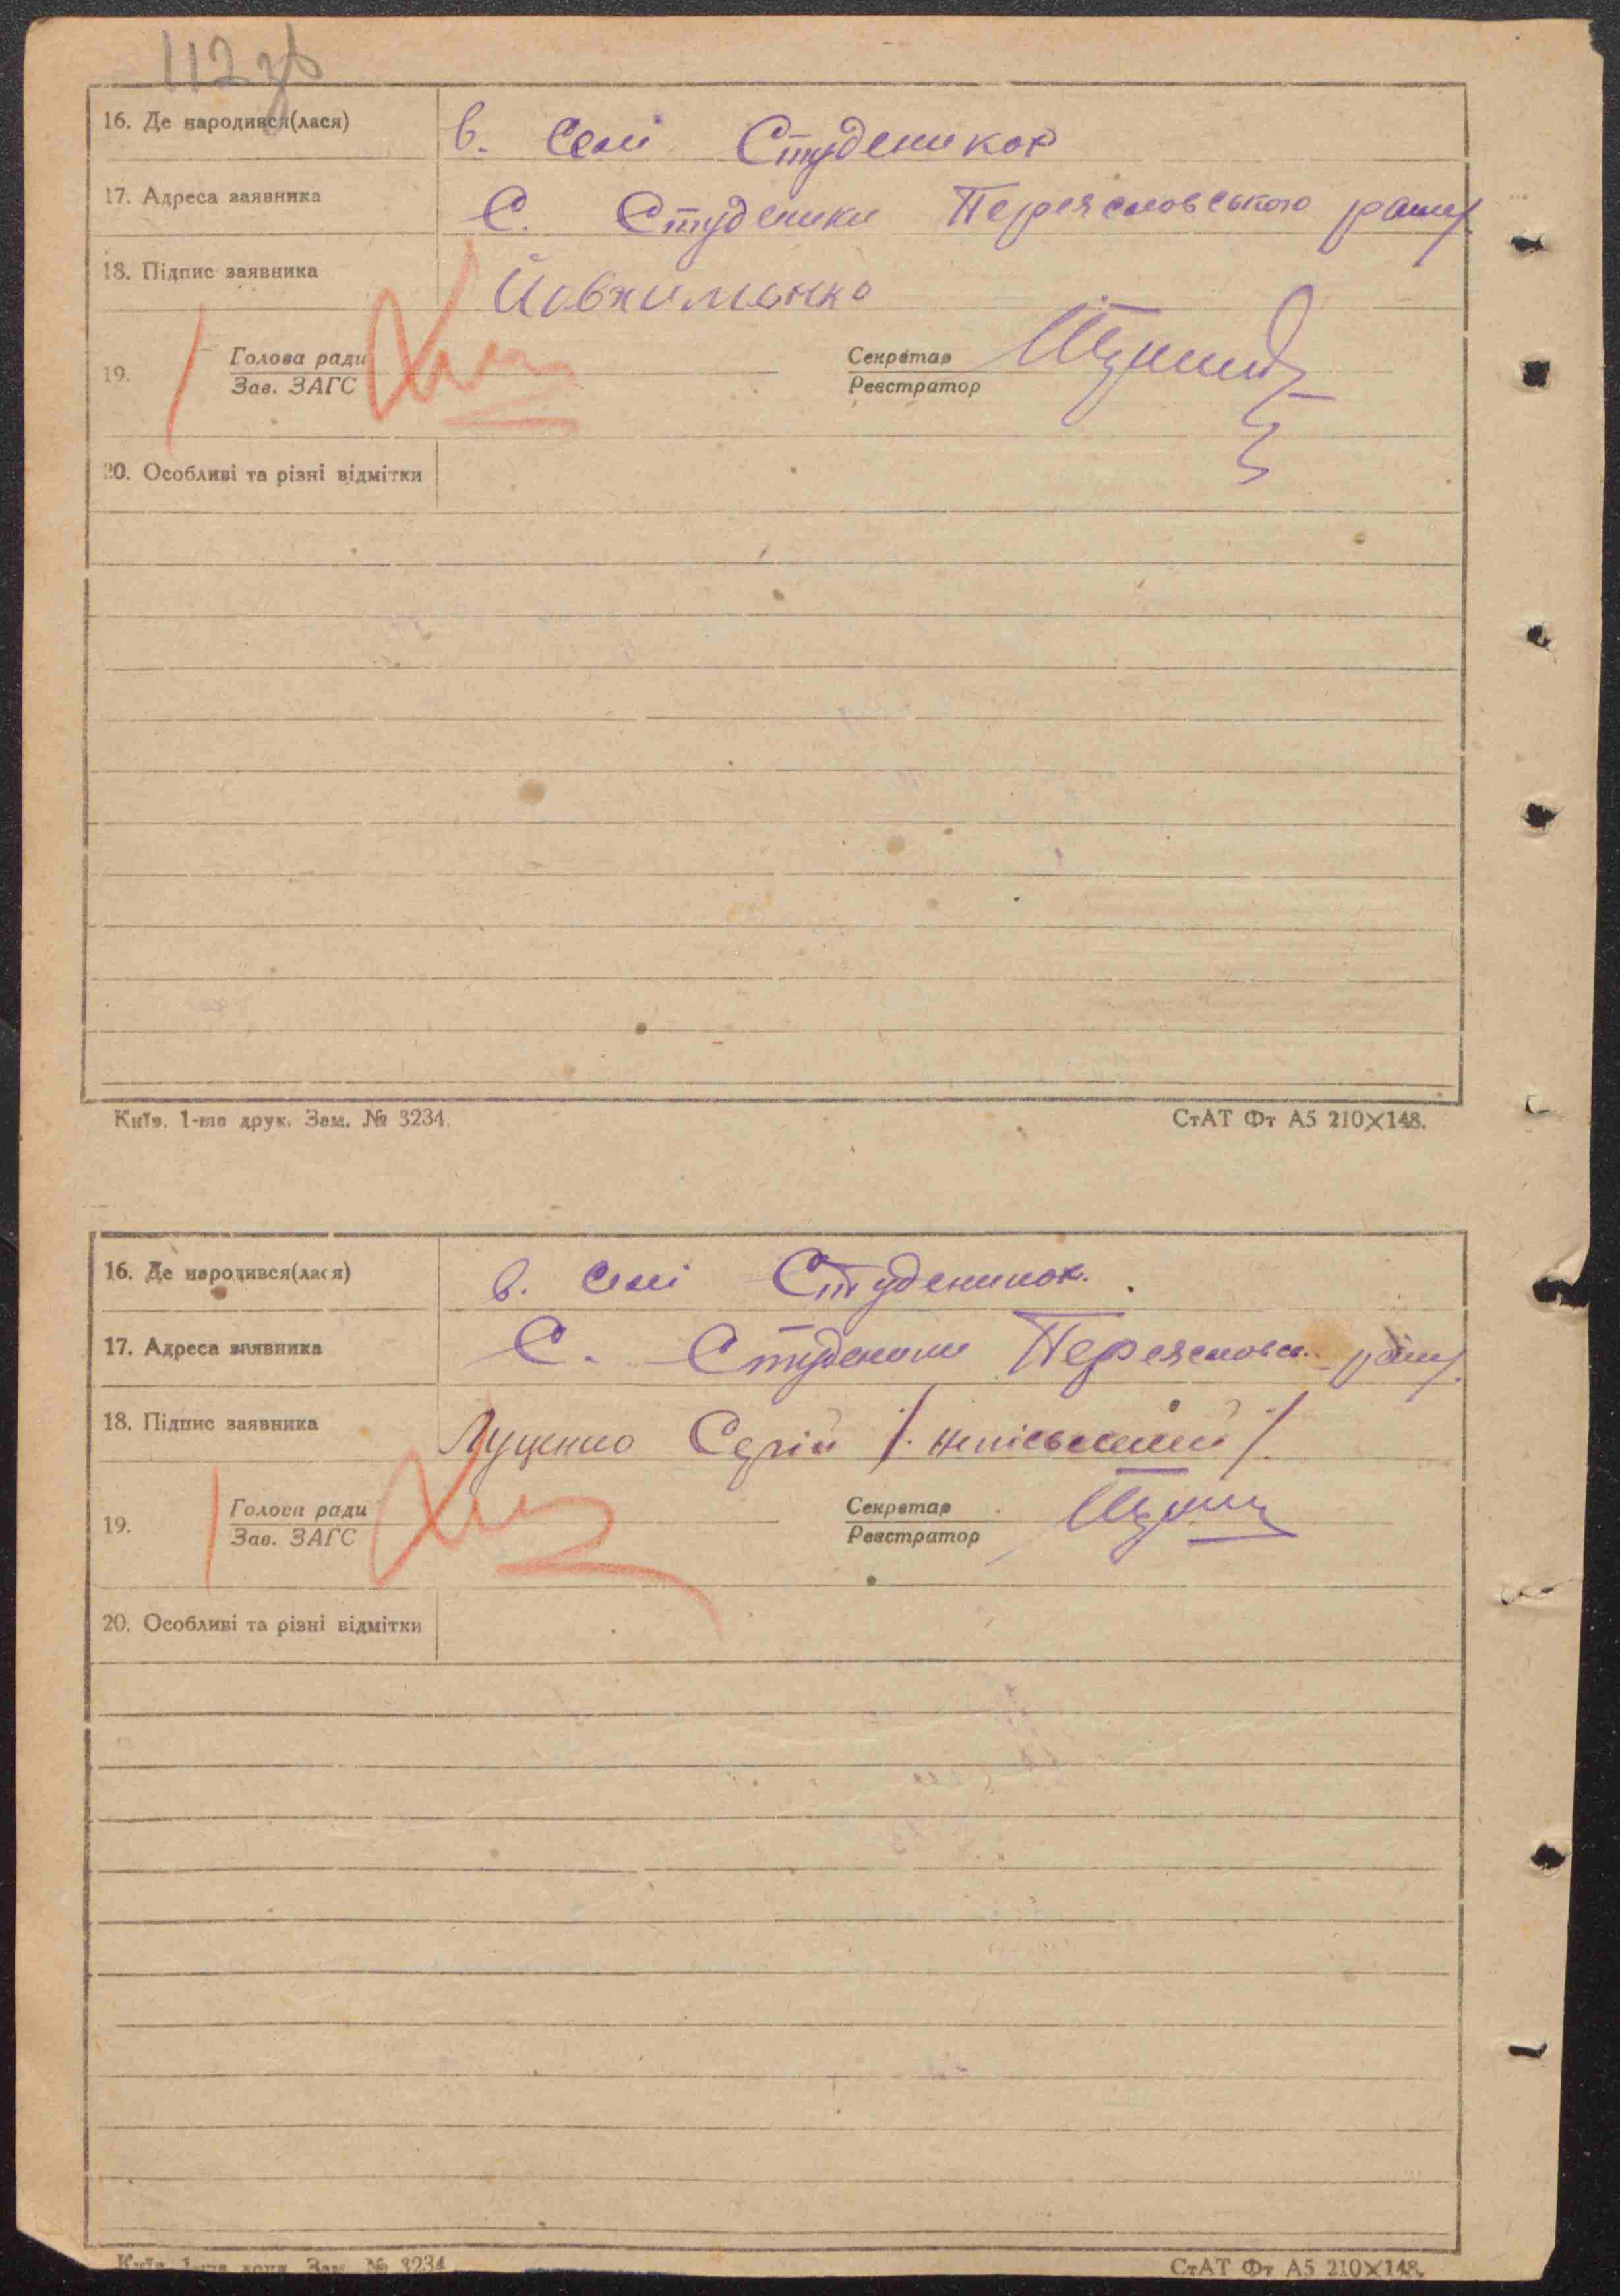 112 зв
16. Де народився(лася) в. селі Студеникок
17. Адреса заявника С. Студеники Переяславського району
18. Підпис заявника Йовхименко
19. Голова ради Секретар
Зав. ЗАГС Реєстратор
20. Особливі та різні відмітки
Київ. 1-ша друк. Зам. № 3234. СтАТ Фт А5 210×148.
16. Де народився(лася) в. селі Студеникок.
17. Адреса заявника С. Студеники Переяславсь. району.
18. Підпис заявника Луценко Сергій
19. Голова ради Секретар
Зав. ЗАГС Реєстратор
20. Особливі та різні відмітки
Київ. 1-ша друк. Зам. № 3234 СтАТ Фт А5 210×148.